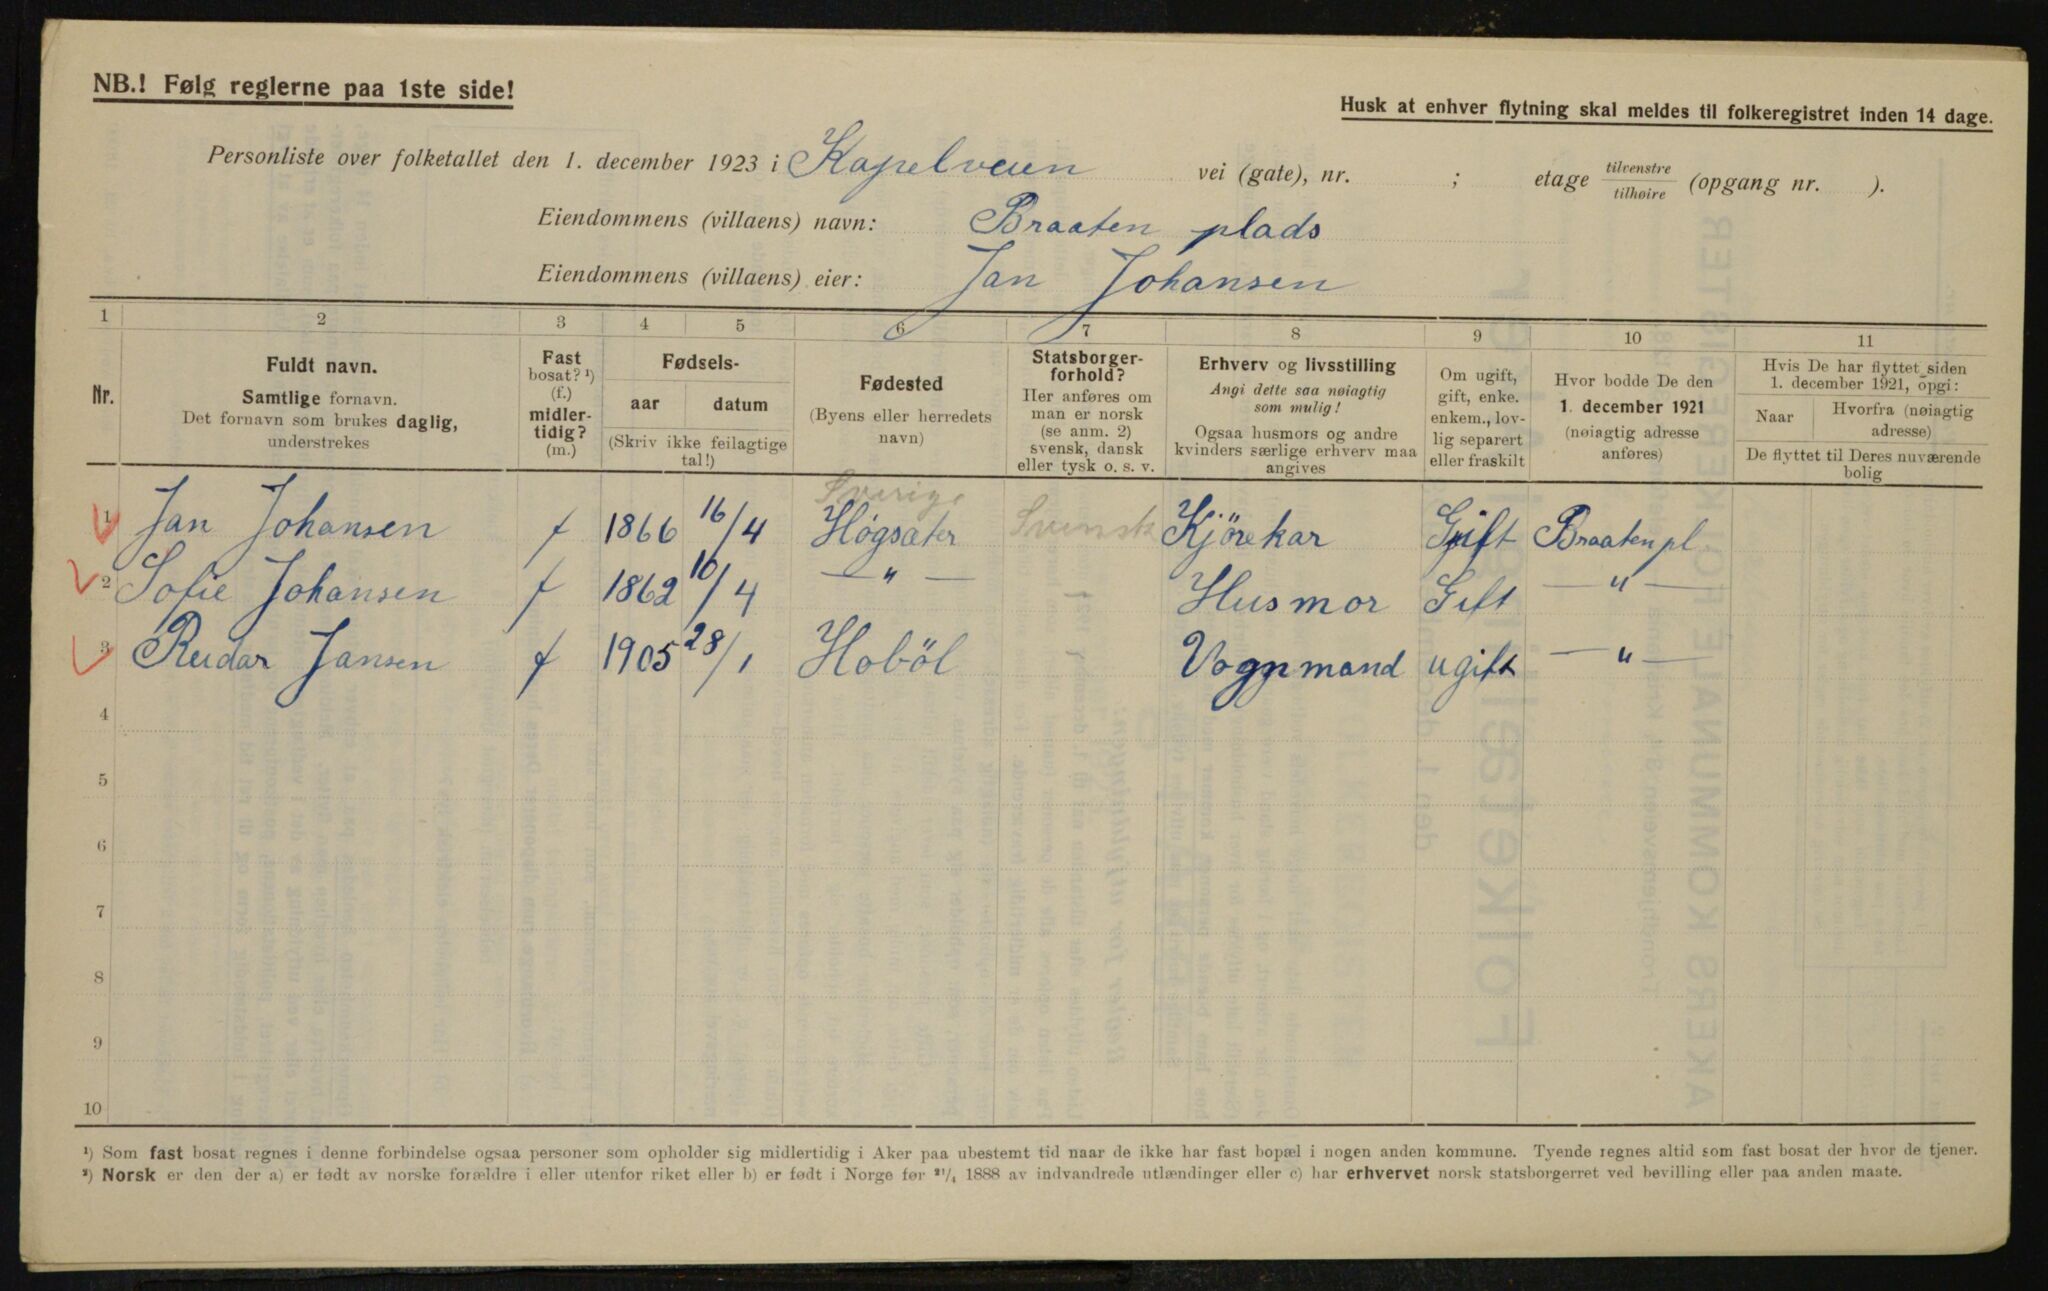 NB.! Følg reglerne paa 1ste side!
Husk at enhver flytning skal meldes til folkeregistret inden 14 dage.
Personliste over folketallet den 1. december 1923 i Kapelveien vei (gate), nr. ; etage tilvenstre/tilhøire (opgang nr. ).
Eiendommens (villaens) navn: Braaten plads
Eiendommens (villaens) eier: Jan Johansen
1 2 3 4 5 6 7 8 9 10 11
Nr.
Fuldt navn.
Samtlige fornavn.
Det fornavn som brukes daglig,
understrekes
Fast
bosat? ¹)
(f.)
midler-
tidig?
(m.)
Fødsels-
aar datum
(Skriv ikke feilagtige
tal!)
Fødested
(Byens eller herredets
navn)
Statsborger-
forhold?
Her anføres om
man er norsk
(se anm. 2)
svensk, dansk
eller tysk o. s. v.
Erhverv og livsstilling
Angi dette saa nøiagtig
som mulig!
Ogsaa husmors og andre
kvinders særlige erhverv maa
angives
Om ugift,
gift, enke.
enkem., lov-
lig separert
eller fraskilt
Hvor bodde De den
1. december 1921
(nøiagtig adresse
anføres)
Hvis De har flyttet siden
1. december 1921, opgi:
Naar Hvorfra (nøiagtig
adresse)
De flyttet til Deres nuværende
bolig
Sverige
1 Jan Johansen f 1866 16/4 Høgsäter Svensk Kjörekar Gift Braaten pl.
2 Sofie Johansen f 1862 10/4 — " — Husmor Gift — " —
3 Reidar Jansen f 1905 28/1 Hoböl Vognmand ugift — " —
4
5
6
7
8
9
10
¹) Som fast bosat regnes i denne forbindelse ogsaa personer som opholder sig midlertidig i Aker paa ubestemt tid naar de ikke har fast bopæl i nogen anden kommune. Tyende regnes altid som fast bosat der hvor de tjener.
²) Norsk er den der a) er født av norske forældre i eller utenfor riket eller b) er født i Norge før ²¹/₄ 1888 av indvandrede utlændinger eller c) har erhvervet norsk statsborgerret ved bevilling eller paa anden maate.